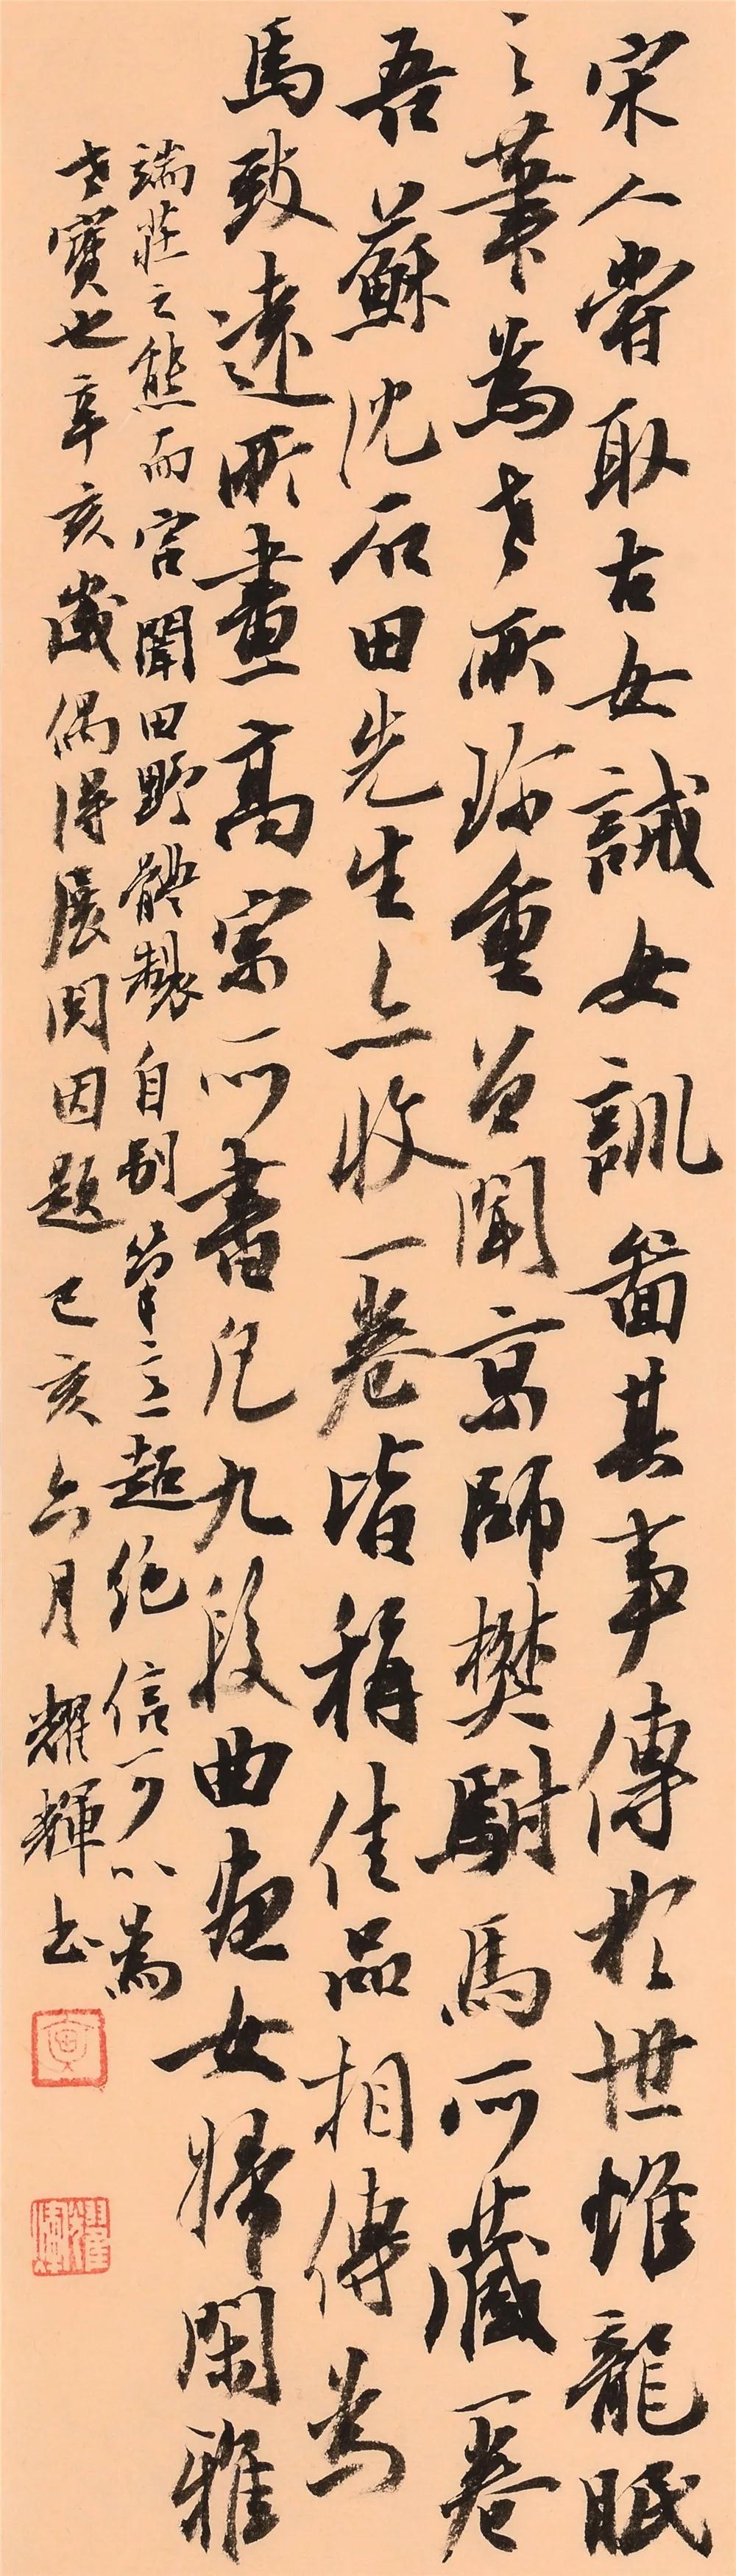 宋人嘗取古女誡女訓啚其事傳於世惟龍眠
之筆為世所珍重曾聞京師樊駙馬所藏一卷
吾蘇沈石田先生亦收一卷皆稱佳品相傳為
馬致遠所畫高宗所書凡九段曲盡女婦閑雅
端莊之態而宮闈田野體製自別筆意超絶信可以為
世寶也辛亥歲偶得展閱因題己亥六月耀輝書